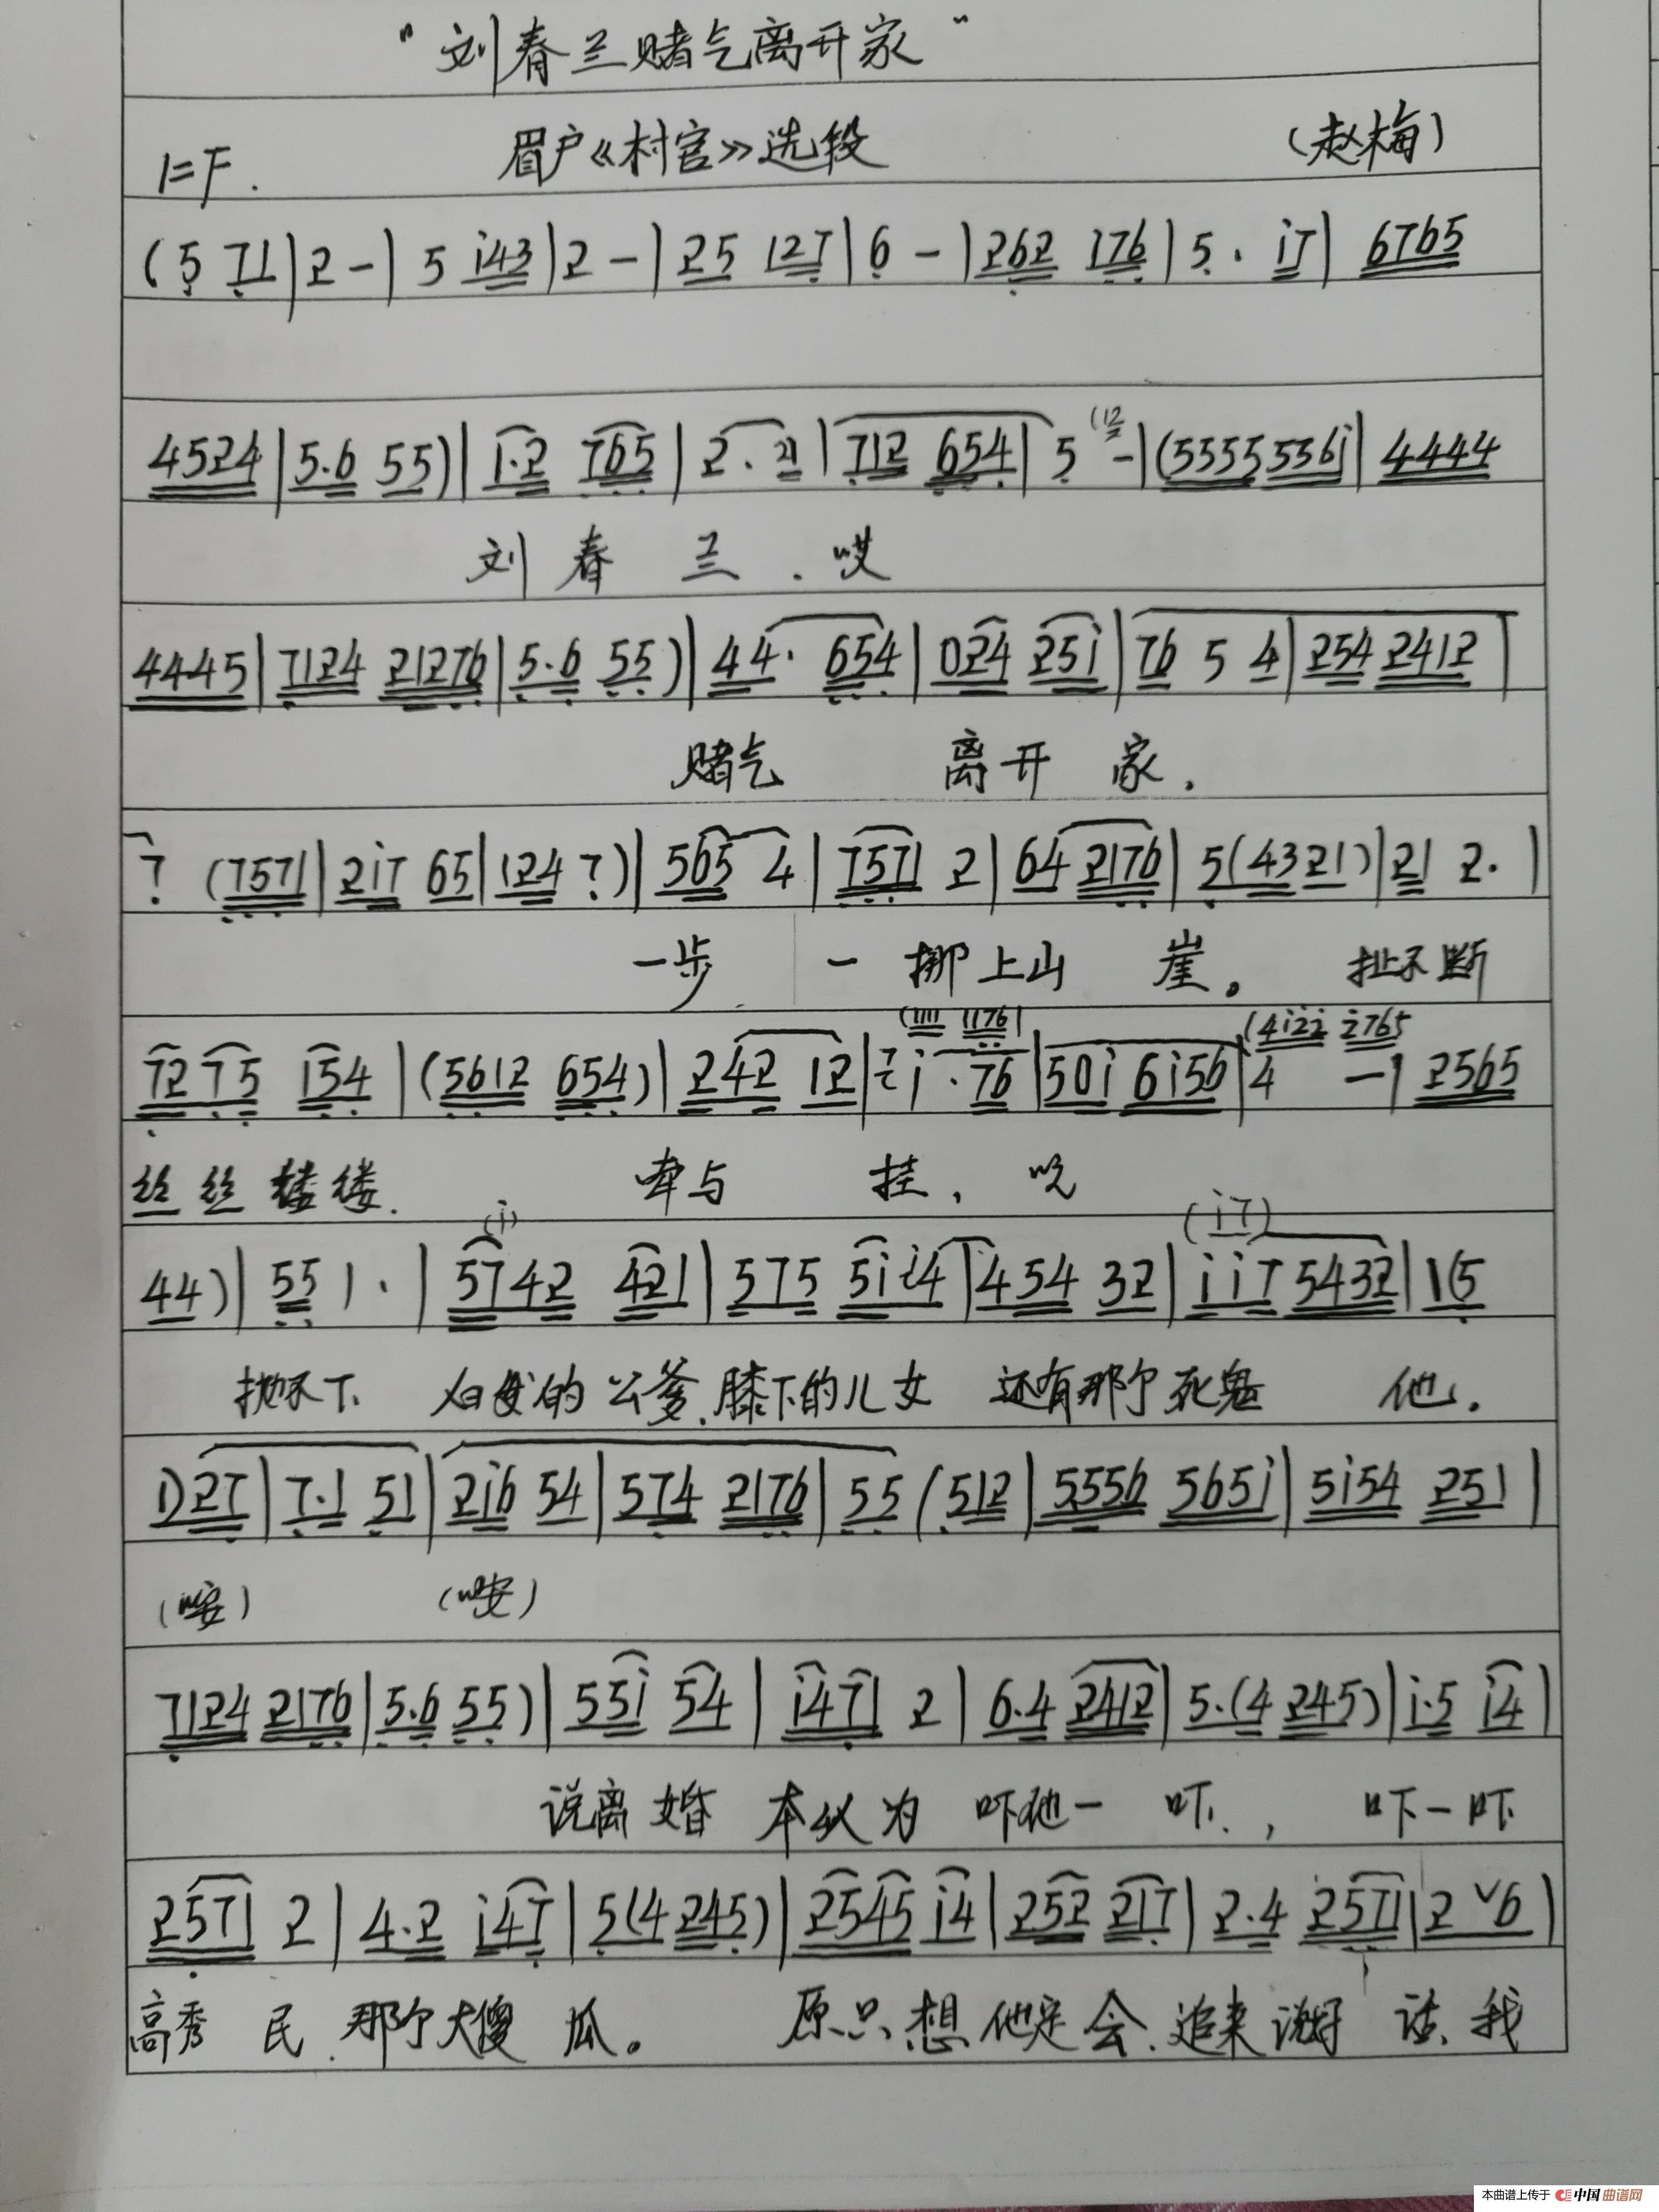 "刘春兰赌气离开家"
1=F. 眉户《村官》选段 (赵梅)
(5 71|2-|5 i43|2-|25 127|6-|262 176|5. i7|6765
4524|5.6 55)|1.2 765|2. 21|712 654|5 -|(5555 536i|4444
刘 春 兰.哎
4445|7124 21276|5.6 55)|44. 654|024 251|76 5 4|254 2412|
赌气 离开 家.
7 (7571|217 65|124 7)|565 4|7571 2|64 2176|5(4321)|21 2.|
一步 一挪上山 崖。 扯不断
(1111 1176| (4i22 2765
72 75 154|(5612 654)|242 12|i.76|50i 6i56|4 -|2565
丝丝缕缕. 牵与 挂,
(i) (i7)
44)|55 1.|5742 421|575 5i24|454 32|ii7 5432|1(5
抛不下 的公爹.膝下的儿女 还有那个死鬼 他.
1)27|7.1 51|2i6 54|574 2176|55(512|5556 565i|5i54 251|
(唉) (唉)
7124 2176|5.6 55)|55i 54|i471 2|6.4 2412|5.(4 245)|i.5 i4|
说离婚 本以为 吓他一 吓., 吓一吓
2571 2|4.2 i47|5(4 245)|2545 i4|252 217|2.4 2571|2 ˅6|
高秀 民.那个大傻 瓜。 原只想他定会.追来说好 话.我
本曲谱上传于 中国曲谱网